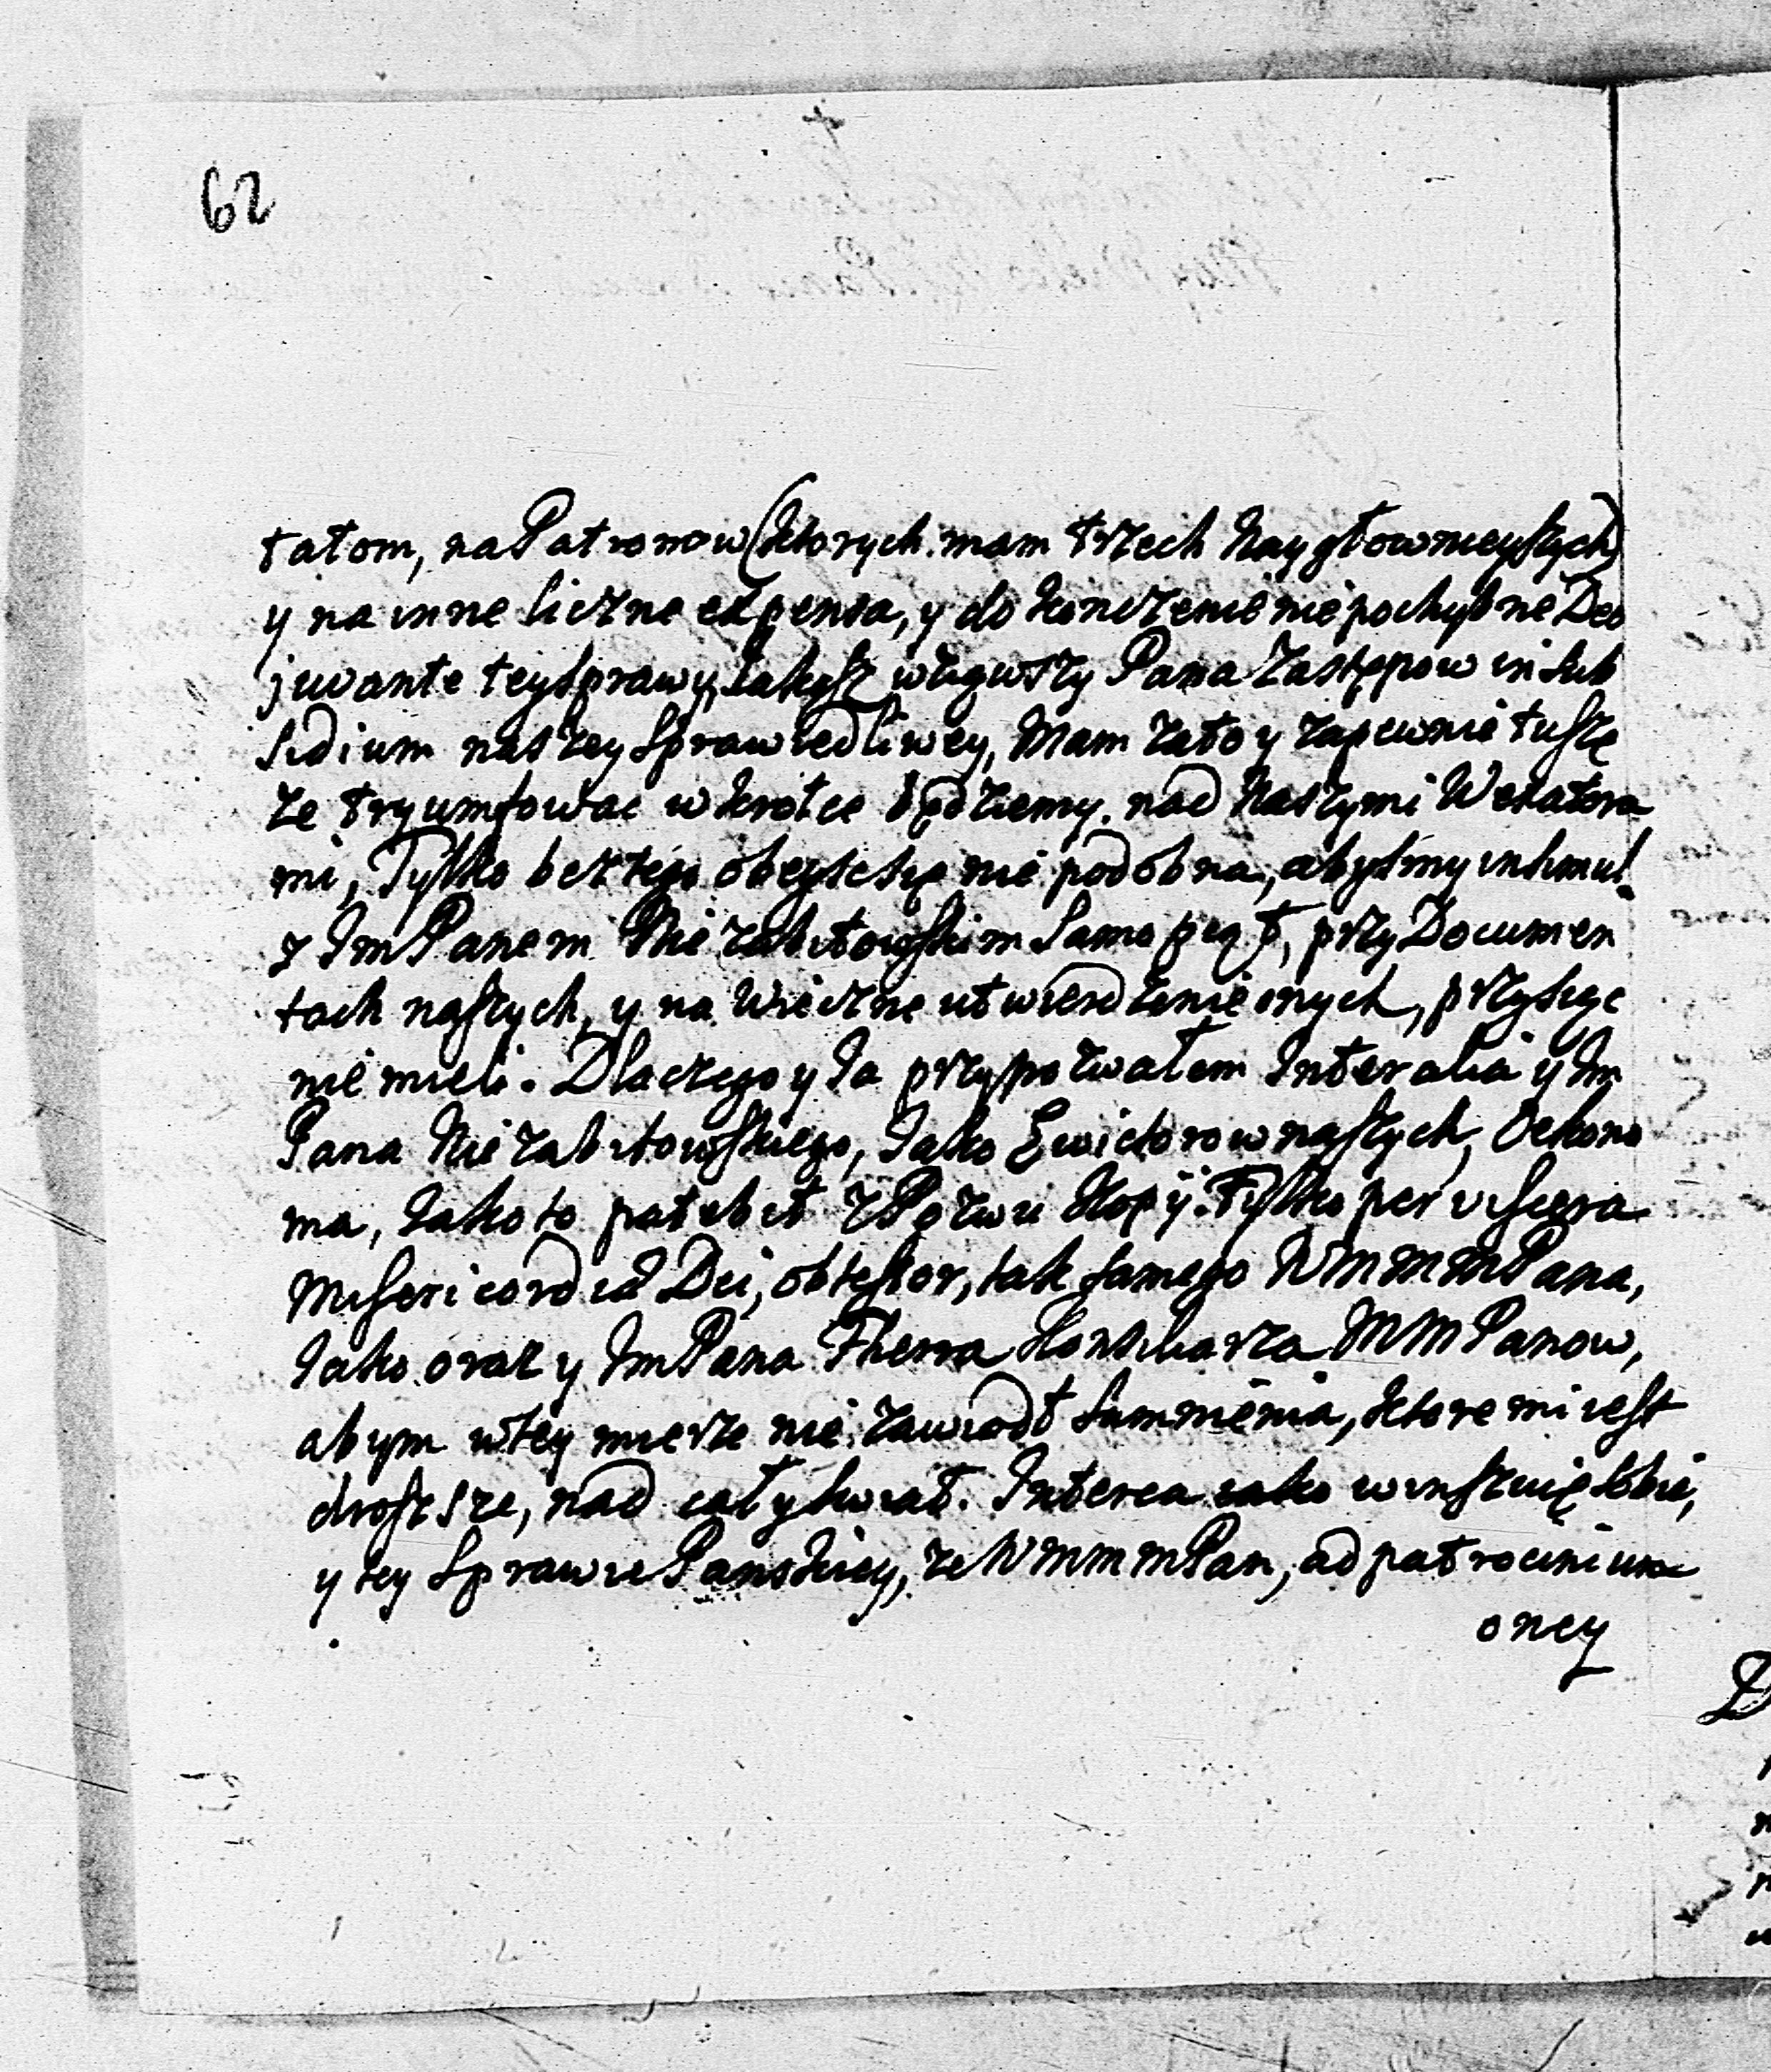 62
tatom, na Patronow (ktorych mam trzech Naygłownieyszych)
y na inne liczne expensa, y dokonczenie niepochybne Deo
juvante tey sprawy, wziąwszy Pana Zastępow in sub
sidium naszey sprawiedliwey, Mam zato y zapewnie tuszę
ze tryumfowac wkrotce będziemy nad Naszymi Wexatora
mi, Tylko bez tego obeyscsię nie podobna, abysmy insimul
z ImPanem Niezabitowskim Samopięt, przy Documen
tach naszych, y na wieczne utwierdzenie onych, przysięc
nie mieli. Dlaczego y Ja przypozwałem Inter alia y Im
Pana Niezabitowskiego, Jako Ewictorow naszych, Oekono
ma, Jako to patebit z Pozwu Kopÿ. Tylko per viscera
Misericordia Dei, obtestor, tak samego WMMMPana,
Jako oraz y ImPana Fherra MMPanow,
abym wtey mierze nie zawiodł Sumnienia, ktore mi iest
drozsze, nad cały swiat. Interea iako winszuię sobie,
y tey Sprawie Panskiey, ze WMMMPan, ad patrocinium
oney